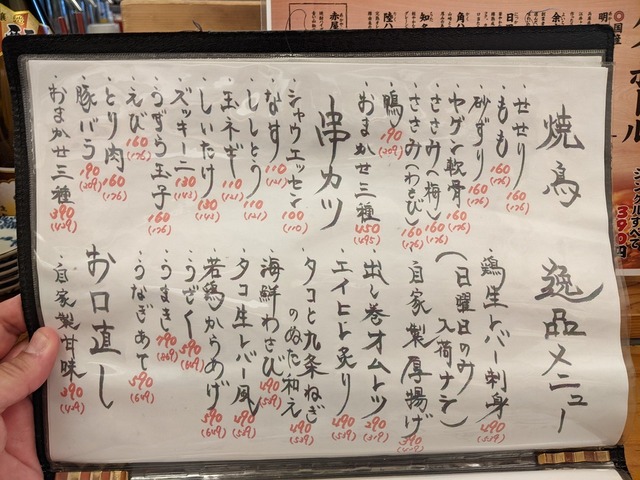 焼鳥
・せせり 160 (176)
・もも 160 (176)
・砂ずり 160 (176)
・ヤゲン軟骨 160 (176)
・ささみ(梅) 160 (176)
・ささみ(わさび) 160 (176)
・鴨 190 (209)
・おまかせ三種 450 (495)
串カツ
・シャウエッセン 100 (110)
・なす 110 (121)
・ししとう 110 (121)
・玉ネギ 110 (121)
・しいたけ 130 (143)
・ズッキーニ 130 (143)
・うずら玉子 160 (176)
・えび 160 (176)
・とり肉 160 (176)
・豚バラ 190 (209)
・おまかせ三種 390 (429)
逸品メニュー
・鶏生レバー刺身 490 (539)
(日曜日のみ入荷ナシ)
・自家製厚揚げ 390
・出し巻オムレツ 290 (319)
・エイヒレ炙り 490 (539)
・タコと九条ねぎのぬた和え 490 (539)
・海鮮わさび 490 (539)
・タコ生レバー風 490 (539)
・若鶏からあげ 590 (649)
・うざく 590 (649)
・うまき 790 (869)
・うなぎあて 590 (649)
お口直し
・自家製甘味 390 (429)